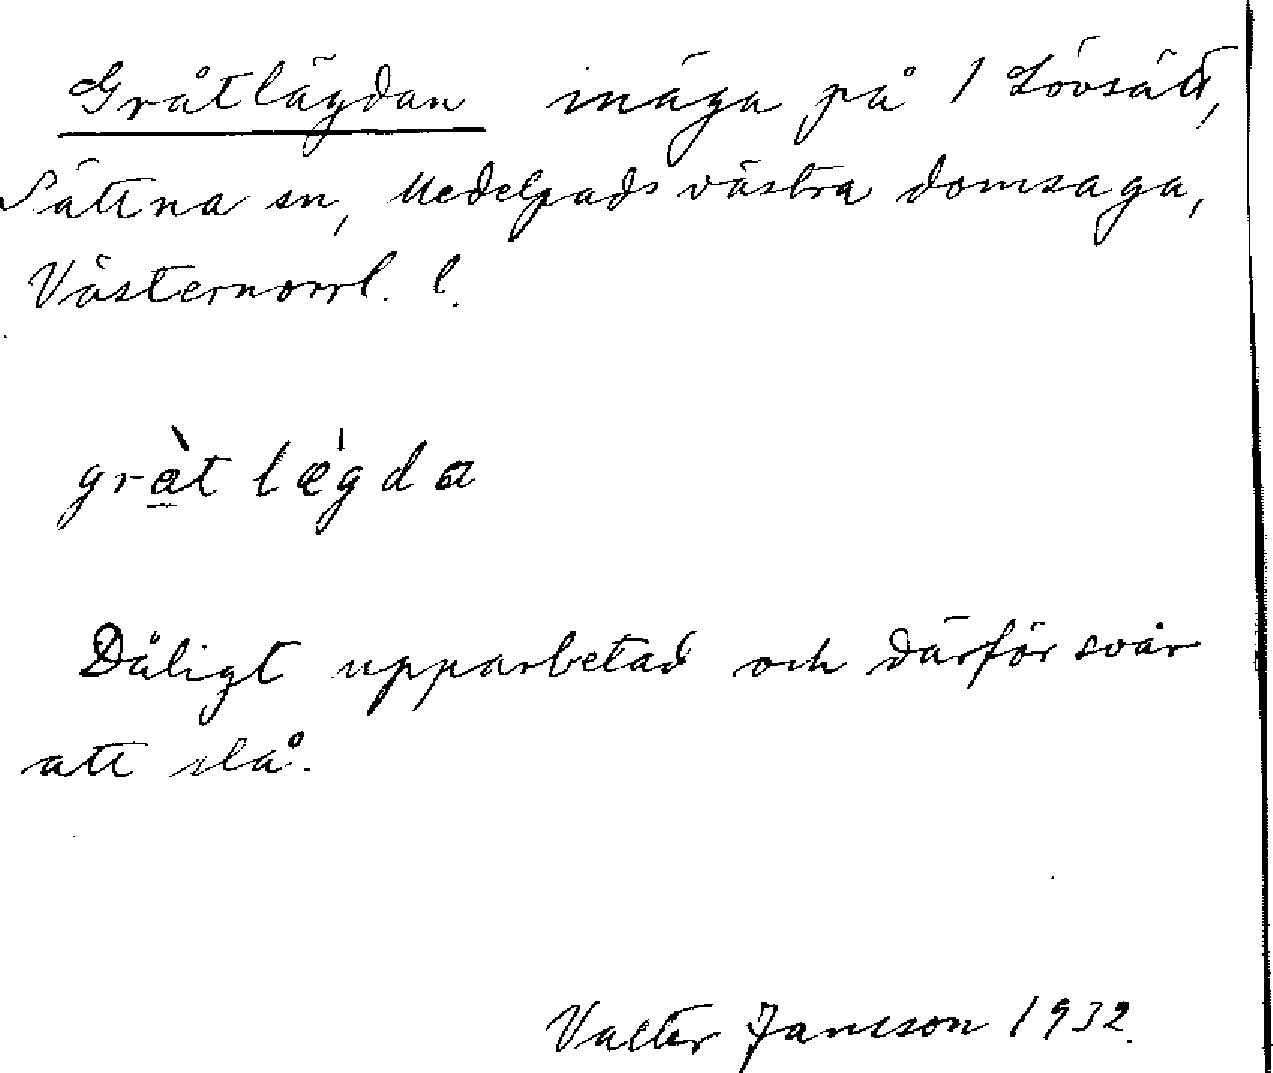 Gråtlägdan inäga på 1 Lövsätt,
Sättna sn, Medelpads västra domsaga,
Västernorrl. l.
gràt lǽgda
Dåligt upparbetad och därför svår
att slå.
Valter Jansson 1932.